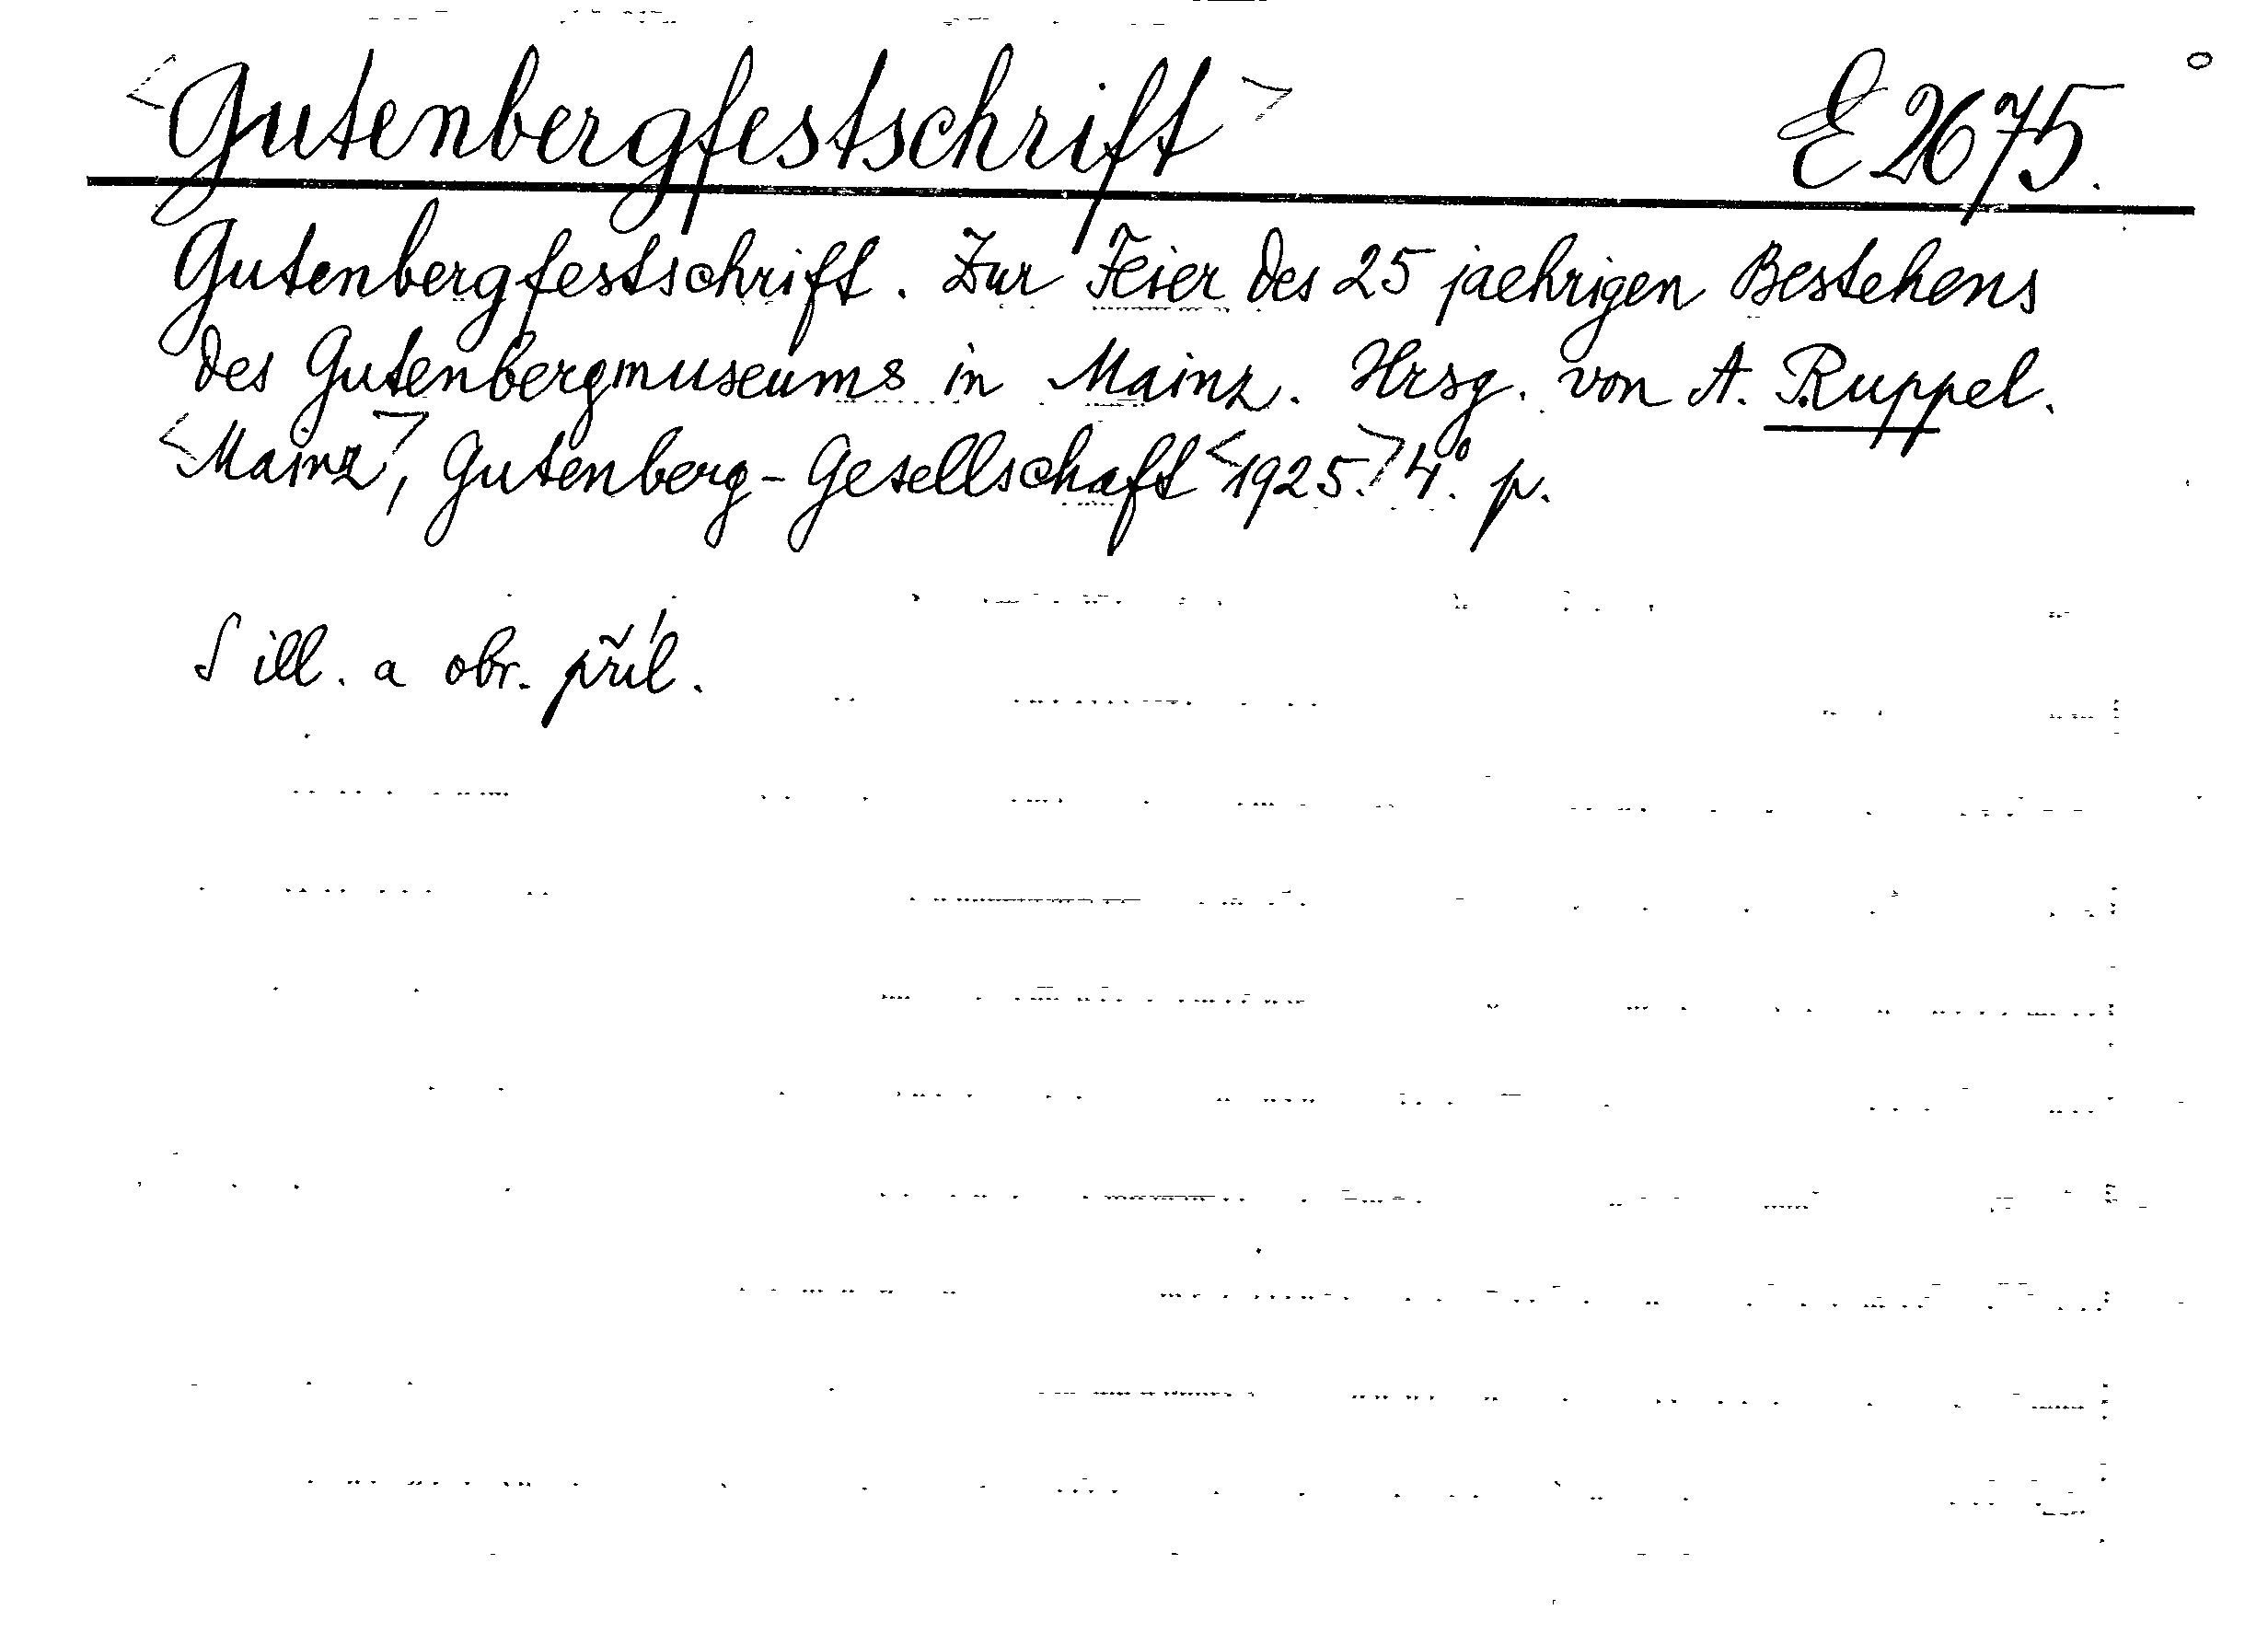 <Gutenbergfestschrift> E 2675.
Gutenbergfestschrift. Zur Feier des 25 jaehrigen Bestehens
des Gutenbergmuseums in Mainz. Hrsg. von A. Ruppel.
<Mainz>, Gutenberg-Gesellschaft <1925.> 4°. p.
S ill. a obr. příl.